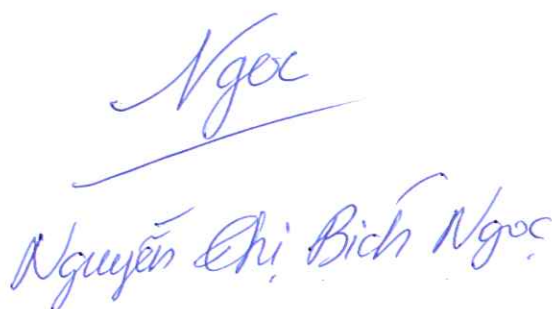 Ngọc
Nguyễn Thị Bích Ngọc